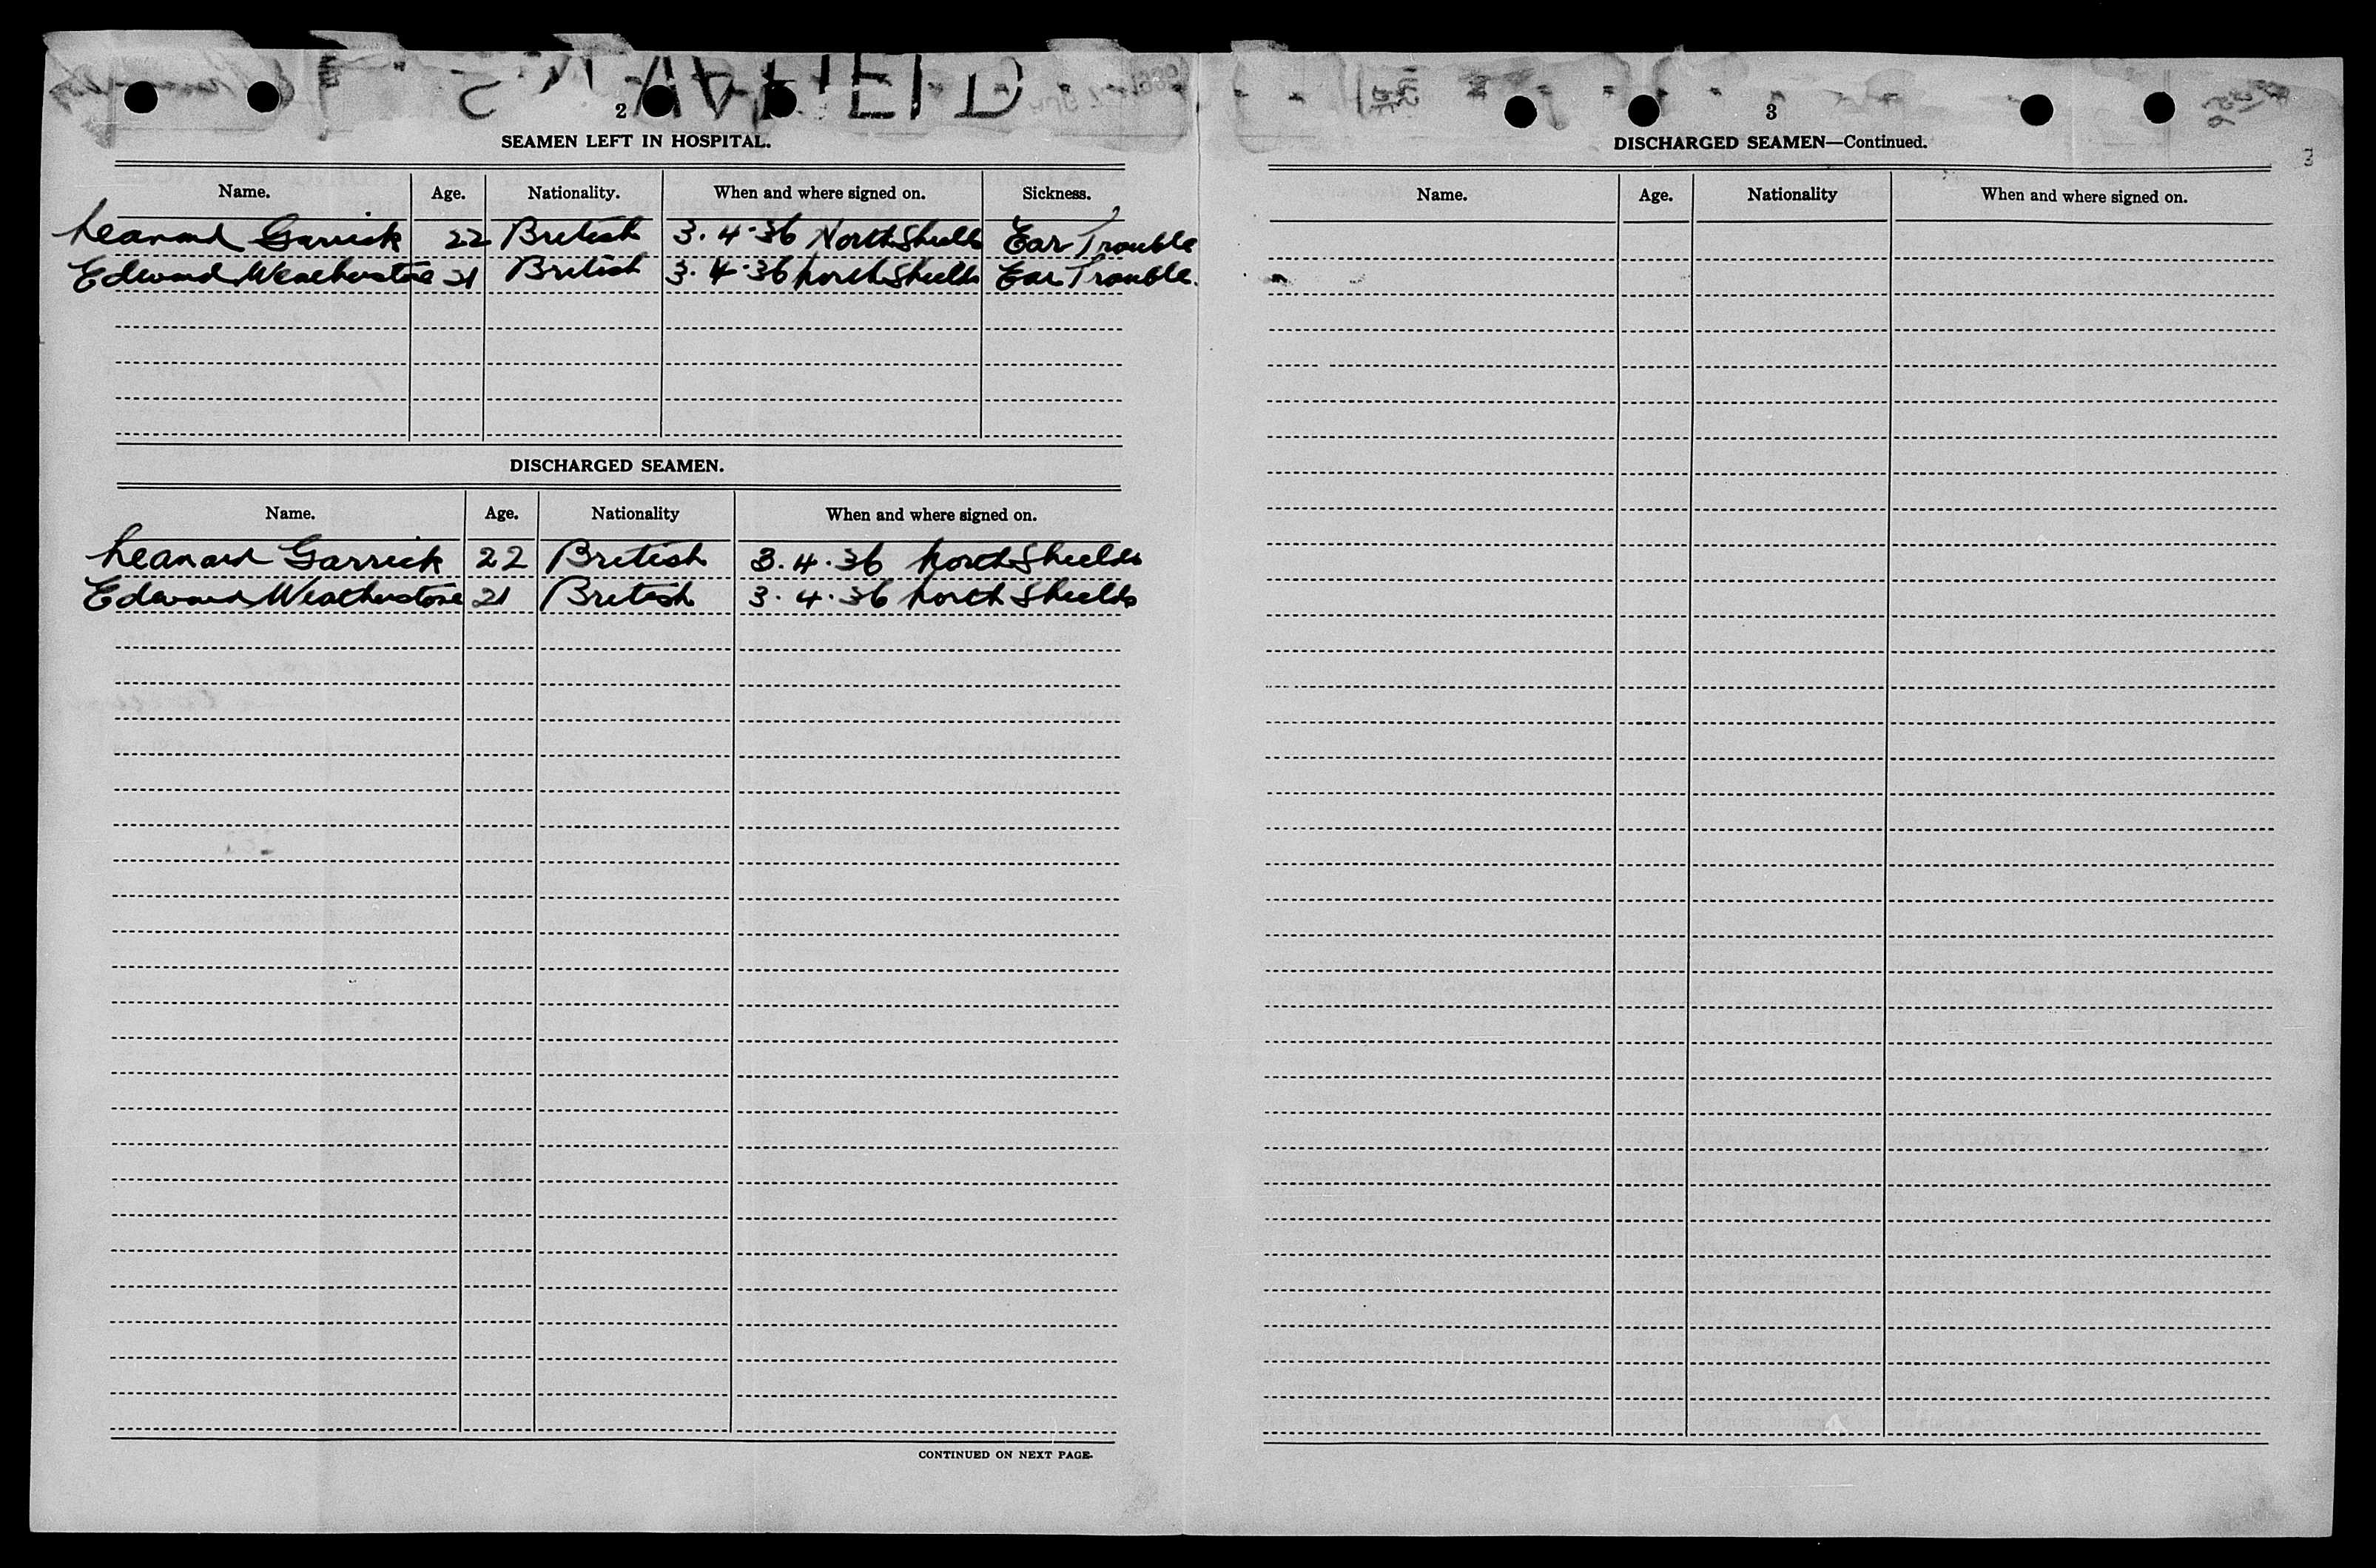 2
SEAMEN LEFT IN HOSPITAL.
Name. Age. Nationality. When and where signed on. Sickness.
Leanard Garrick 22 British 3.4.36 North Shields Ear Trouble
Edward Weatherstone 21 British 3.4.36 North Shields Ear Trouble.
DISCHARGED SEAMEN.
Name. Age. Nationality When and where signed on.
Leanard Garrick 22 British 3.4.36 North Shields
Edward Weatherstone 21 British 3.4.36 North Shields
CONTINUED ON NEXT PAGE.
3
DISCHARGED SEAMEN—Continued.
3
Name. Age. Nationality When and where signed on.